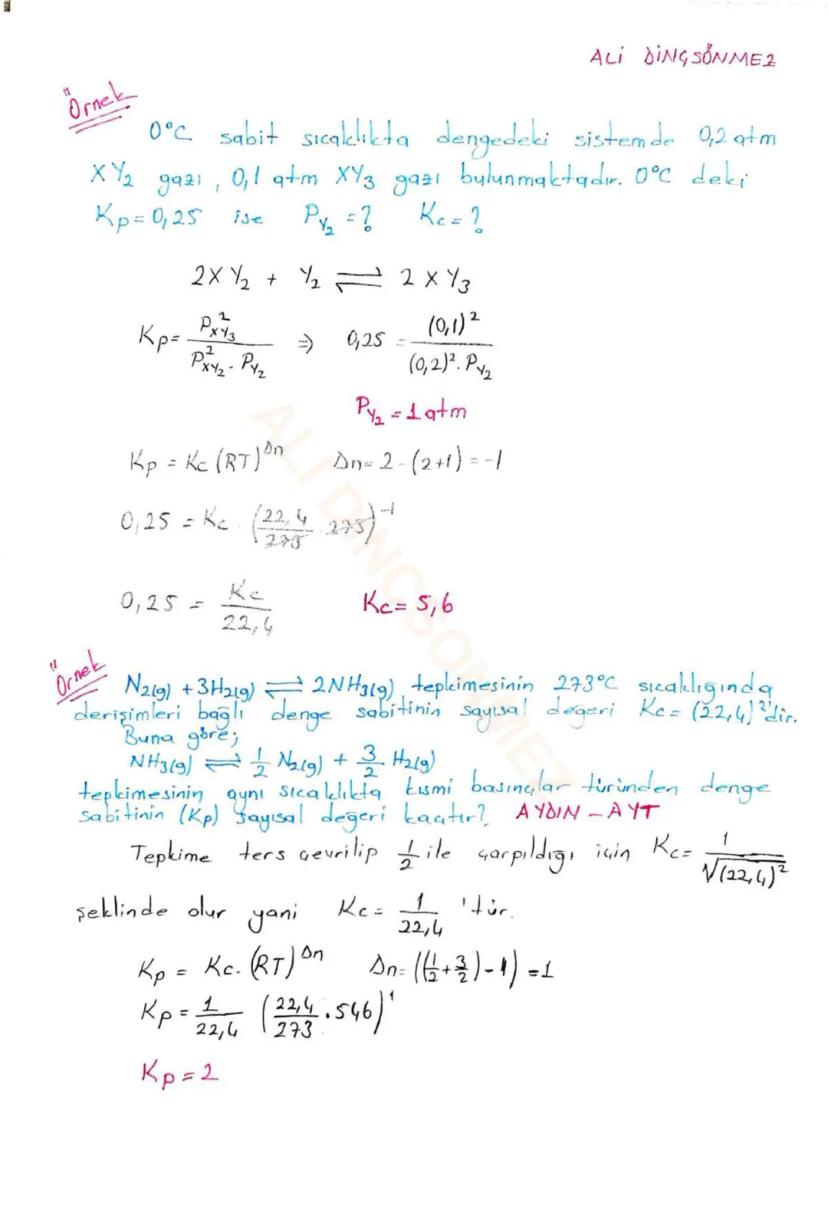 ALİ DİNÇSÖNMEZ
Örnek
0°C sabit sıcaklıkta dengedeki sistemde 0,2 atm
XY₂ gazı, 0,1 atm XY₃ gazı bulunmaktadır. 0°C deki
Kp = 0,25 ise P_Y₂ = ? Kc = ?
2XY₂ + Y₂ ⇌ 2XY₃
Kp = P²_XY₃ / P²_XY₂ · P_Y₂ ⇒ 0,25 = (0,1)² / (0,2)² · P_Y₂
P_Y₂ = 1 atm
Kp = Kc (RT)^Δn Δn = 2 - (2+1) = -1
0,25 = Kc · (22,4 / 273 · 273)⁻¹
0,25 = Kc / 22,4 Kc = 5,6
Örnek
N₂(g) + 3H₂(g) ⇌ 2NH₃(g) tepkimesinin 273°C sıcaklığında
derişimleri bağlı denge sabitinin sayısal değeri Kc = (22,4)² 'dir.
Buna göre;
NH₃(g) ⇌ 1/2 N₂(g) + 3/2 H₂(g)
tepkimesinin aynı sıcaklıkta kısmi basınçlar türünden denge
sabitinin (Kp) sayısal değeri kaçtır? AYDIN - AYT
Tepkime ters çevrilip 1/2 ile çarpıldığı için Kc = 1 / √(22,4)²
şeklinde olur yani Kc = 1 / 22,4 'tür.
Kp = Kc. (RT)^Δn Δn = ((1/2 + 3/2) - 1) = 1
Kp = 1 / 22,4 (22,4 / 273 · 546)¹
Kp = 2
ALİ DİNÇSÖNMEZ